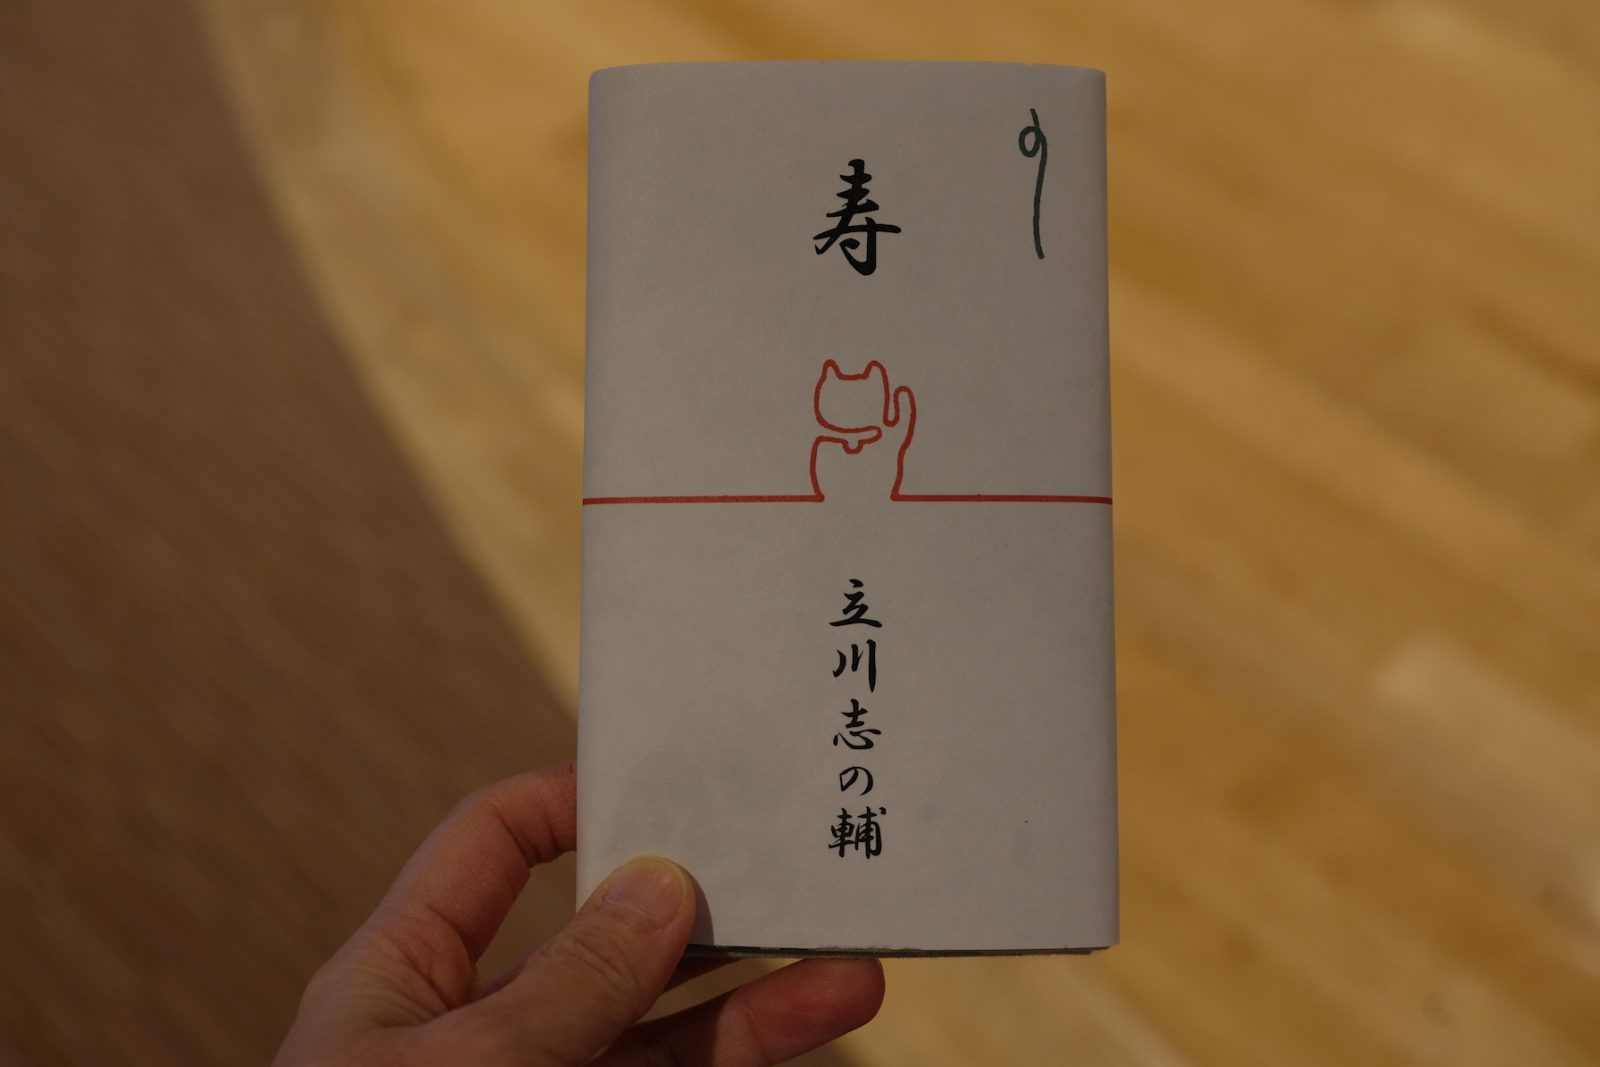 寿
立川志の輔